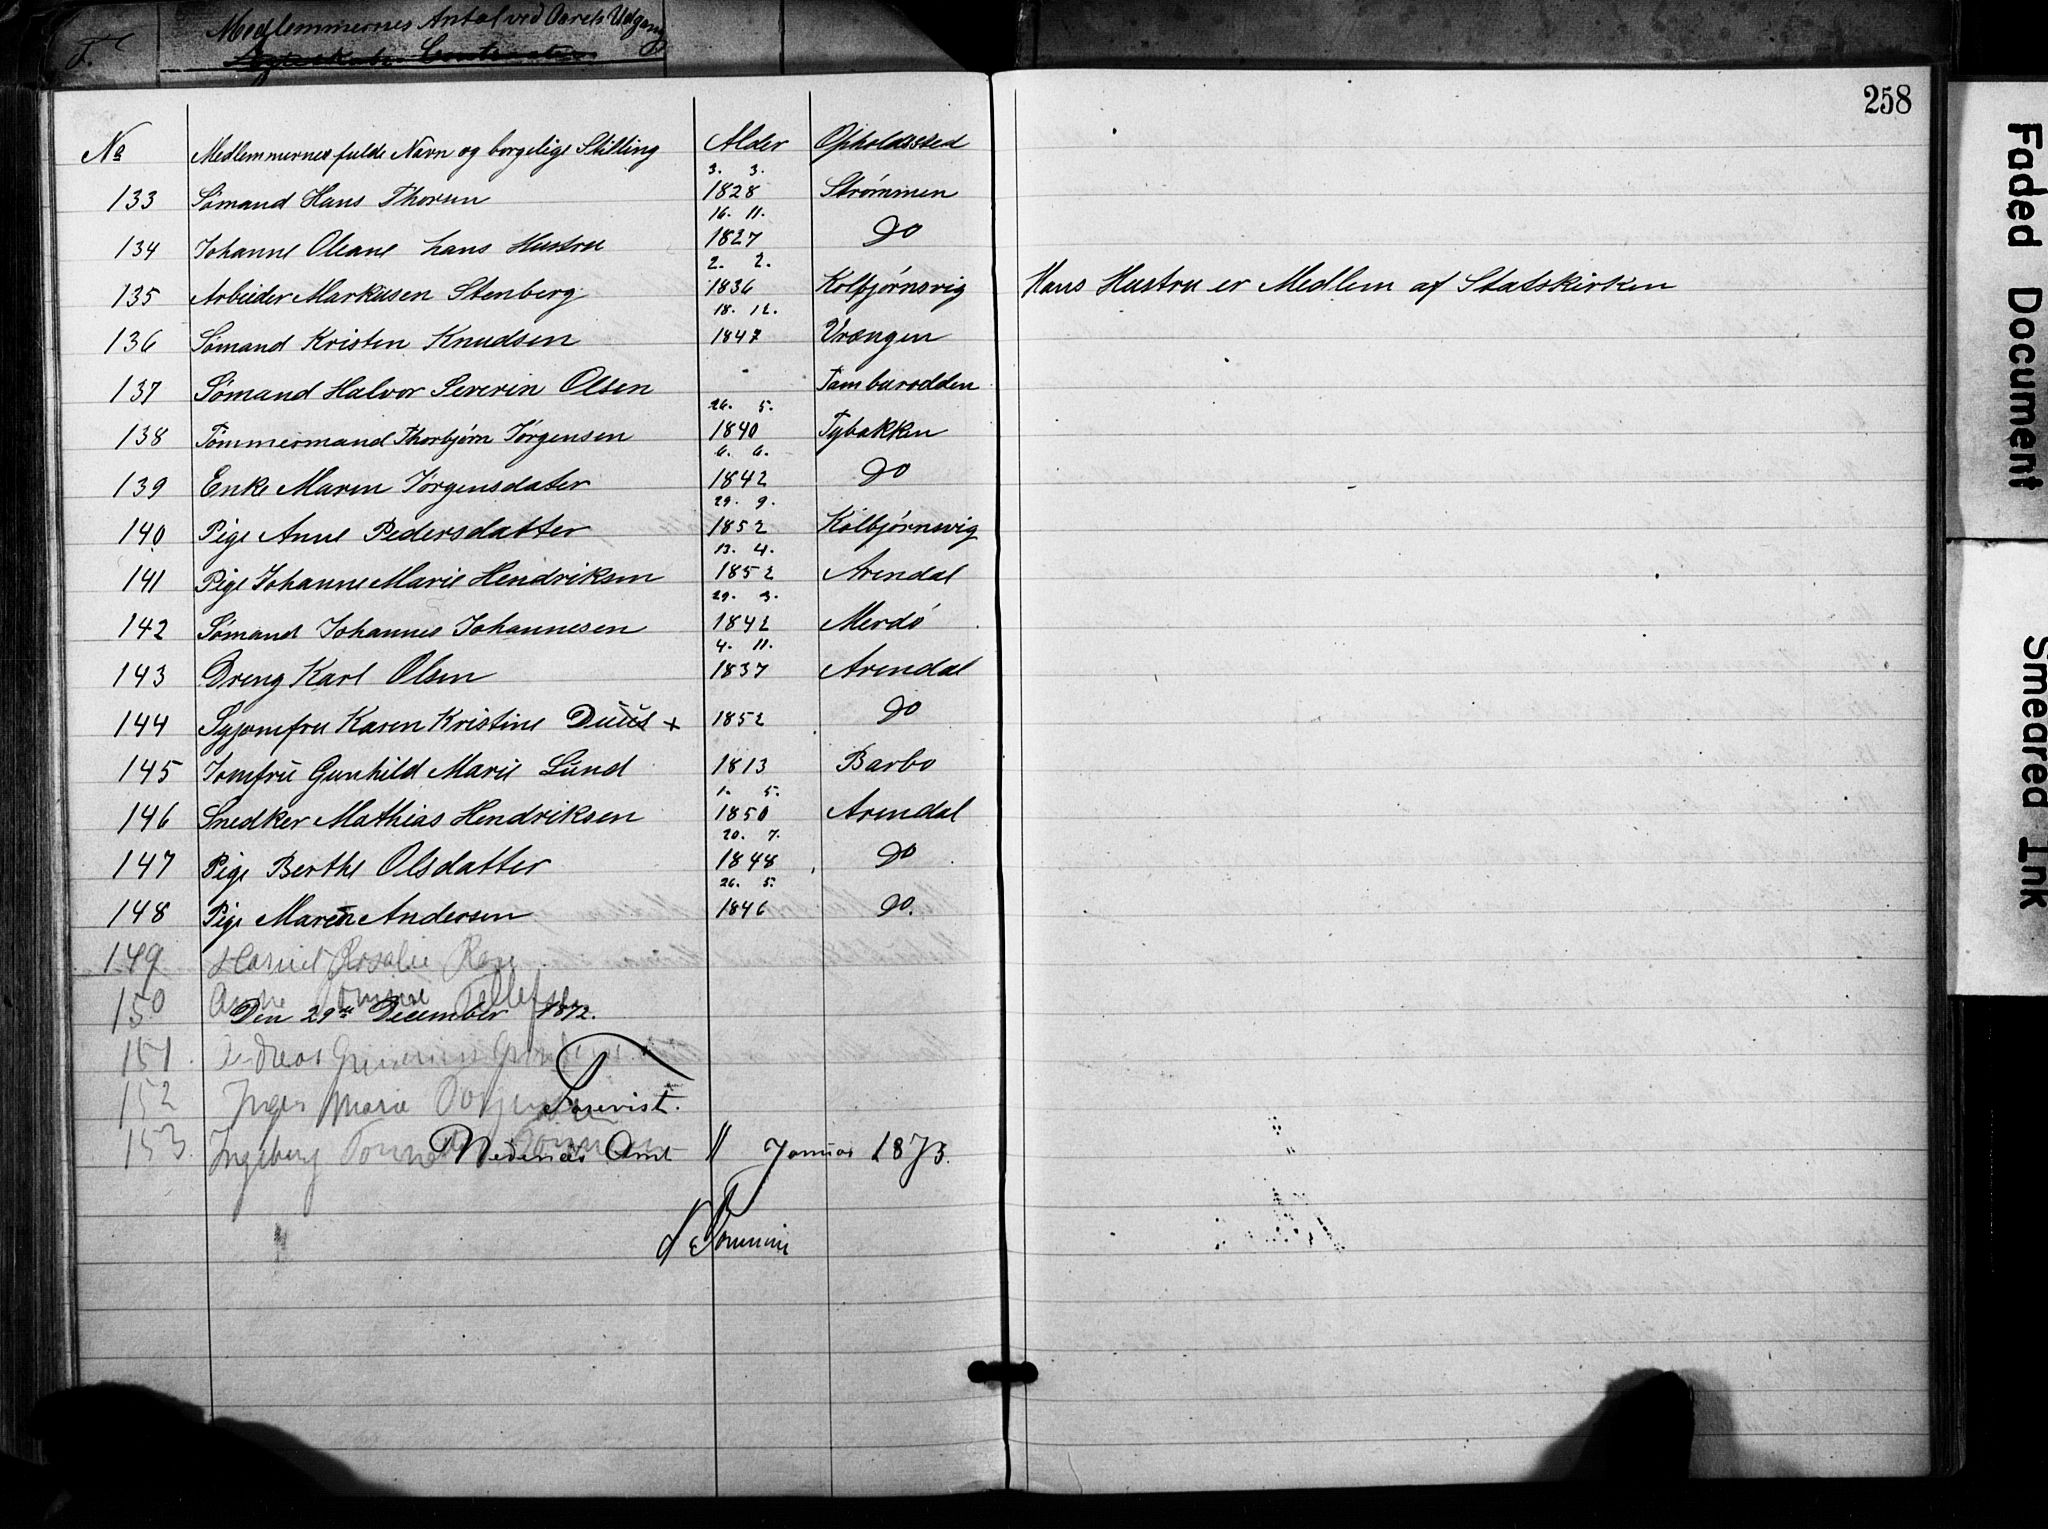 F.
Medlemmernes Antal ved Aarets Udgang
258
No Medlemmernes fulde Navn og borgelige Stilling Alder Opholdssted
3. 3.
133 Sømand Hans Thorsen 1828 Strømmen
16. 11.
134 Johanne Oleane hans Hustru 1827 Do
2. 2.
135 Arbeider Markusen Stenberg 1836 Kolbjørnsvig Hans Hustru er Medlem af Statskirken
18. 12.
136 Sømand Kristen Knudsen 1847 Vrængen
137 Sømand Halvor Severin Olsen Tamburodden
26. 5.
138 Tømmermand Thorbjørn Jørgensen 1840 Tybakken
6. 6.
139 Enke Maren Jørgensdater 1842 Do
29. 9.
140 Pige Anne Pedersdatter 1852 Kolbjørnsvig
13. 4.
141 Pige Johanne Marie Hendriksen 1852 Arendal
29. 3.
142 Sømand Johannes Johannesen 1842 Merdö
4. 11.
143 Dreng Karl Olsen 1837 Arendal
144 Syjomfru Karen Kristine Duus + 1852 Do
145 Jomfru Gunhild Marie Lund 1813 Barbo
1. 5.
146 Snedker Mathias Hendriksen 1850 Arendal
20. 7.
147 Pige Berthe Olsdatter 1848 Do
26. 5.
148 Pige Maren Andersen 1846 Do.
149 Rosalie
150 Tellefsen
Den 29de December 1872.
151
152 Marie
Forevist.
153 Ingeborg
Nedenæs Amt 11 Januar 1873.
Faded Document
Smeared Ink